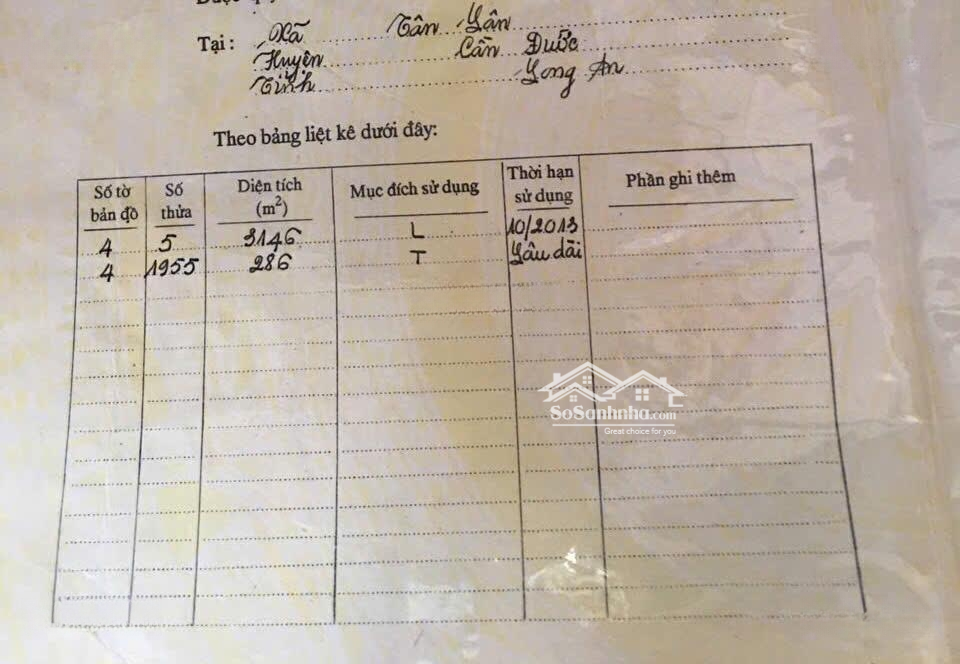 Tại : Xã Tân Lân
Huyện Cần Đước
Tỉnh Long An
Theo bảng liệt kê dưới đây:
Số tờ bản đồ | Số thửa | Diện tích (m²) | Mục đích sử dụng | Thời hạn sử dụng | Phần ghi thêm
4 | 5 | 3146 | L | 10/2013
4 | 1955 | 286 | T | Lâu dài
SoSanhnha.com
Great choice for you